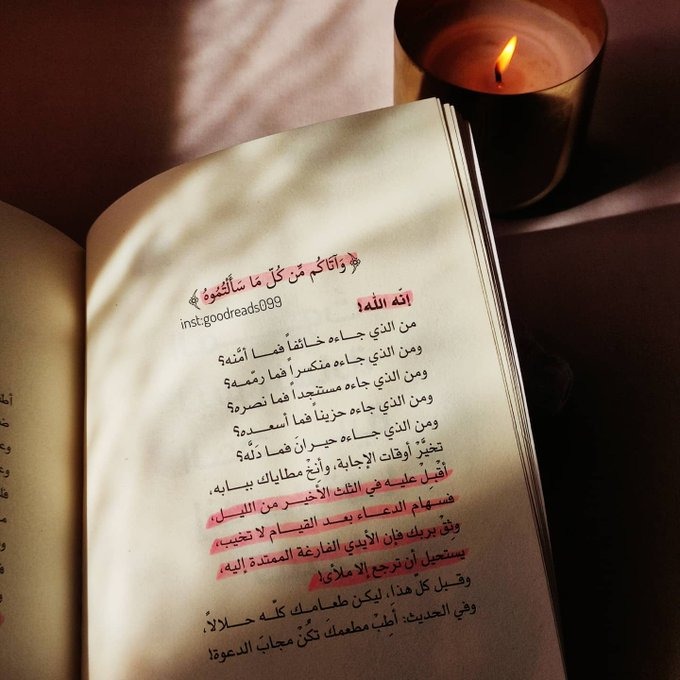 ﴿ وَآتَاكُم مِّن كُلِّ مَا سَأَلْتُمُوهُ ﴾
inst:goodreads099
إنّه الله!
من الذي جاءه خائفاً فما أمَّنه؟
ومن الذي جاءه منكسراً فما رمّمه؟
ومن الذي جاءه مستنجداً فما نصره؟
ومن الذي جاءه حزيناً فما أسعده؟
ومن الذي جاءه حيرانَ فما دَلَّه؟
تخيَّرْ أوقات الإجابة، وأنِخْ مطاياك ببابه،
أقْبِلْ عليه في الثلث الأخير من الليل،
فسهام الدعاء بعد القيام لا تخيب،
وثِقْ بربك فإن الأيدي الفارغة الممتدة إليه،
يستحيل أن ترجع إلا ملأى!
وقبل كلّ هذا، ليكن طعامك كلّه حلالاً،
وفي الحديث: أطِبْ مطعمكَ تكُنْ مجابَ الدعوة!